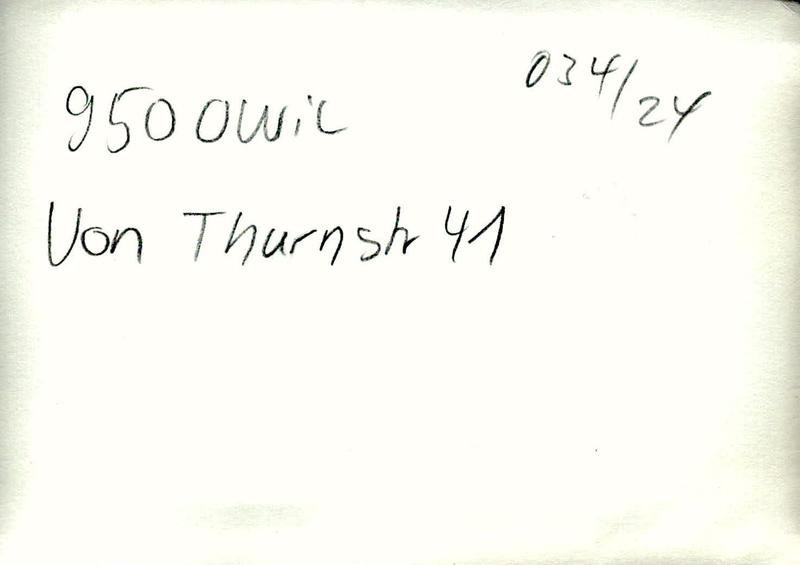 034/24
9500 Wil
Von Thurnstr 41